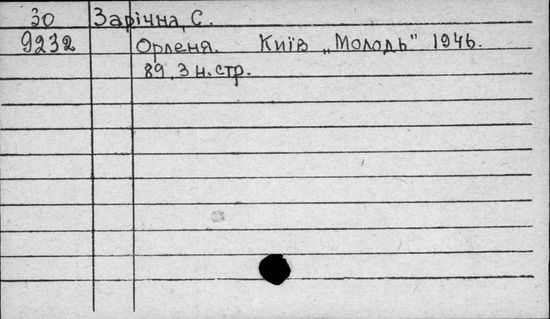 30 Зарічна, С.
9232 Орленя. Київ „Молодь" 1946.
89, 3 н. стр.